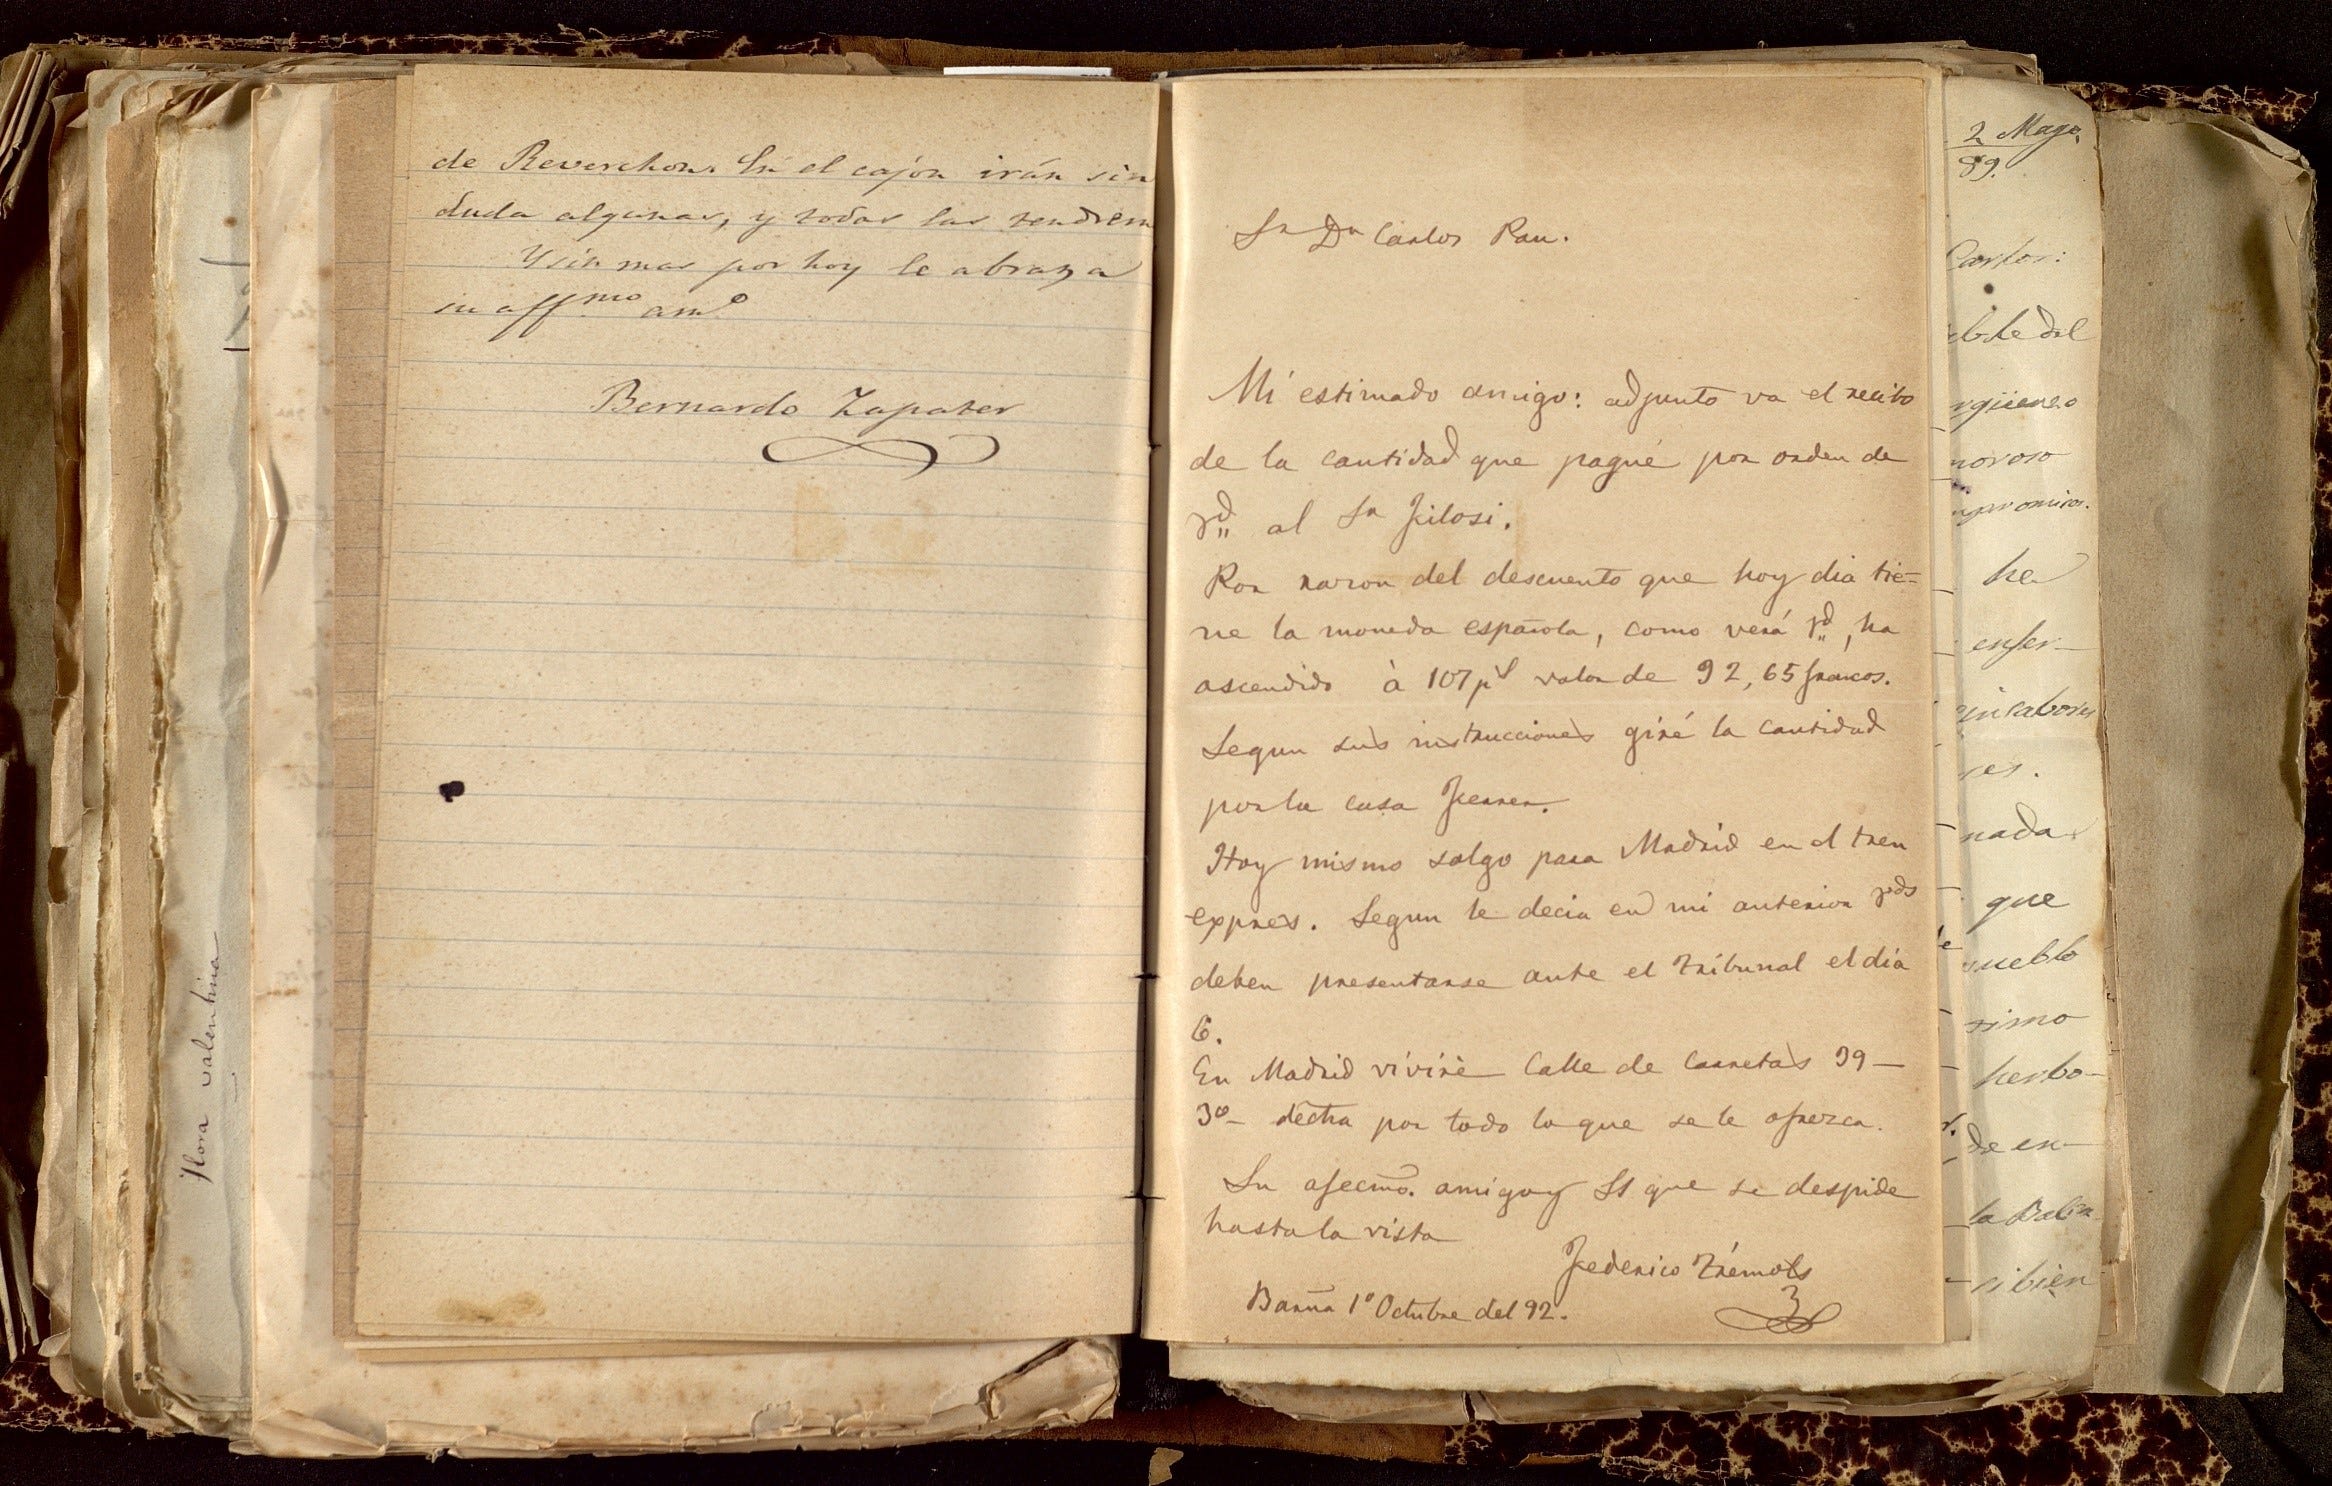 de Reverchon. En el cajón irán sin
duda algunas, y todas las tendrem
Y sin mas por hoy le abraza
su affmo amo
Bernardo Zapater
Flora valentina
Sr Dn Carlos Pau.
Mi estimado amigo: adjunto va el recibo
de la cantidad que pagué por orden de
Vd al Sr Filosi.
Por razon del descuento que hoy dia tie-
ne la moneda española, como verá Vd, ha
ascendido à 107 ps valor de 92,65 francos.
Segun sus instrucciones giré la cantidad
por la casa Ferrer.
Hoy mismo salgo para Madrid en el tren
expres. Segun le decia en mi anterior Vds
deben presentarse ante el tribunal el dia
6.
En Madrid viviré Calle de Carretas 39-
3o- dectra por todo lo que se le ofrezca.
Su afecmo. amigo y SS que se despide
hasta la vista
Federico Trémols
Barna 1o Octubre del 92.
2 Mayo
89.
Carlos:
güenso
noroso
he
enfer-
sinsabores
nada
que
pueblo
simo
herbo-
de en-
si bien